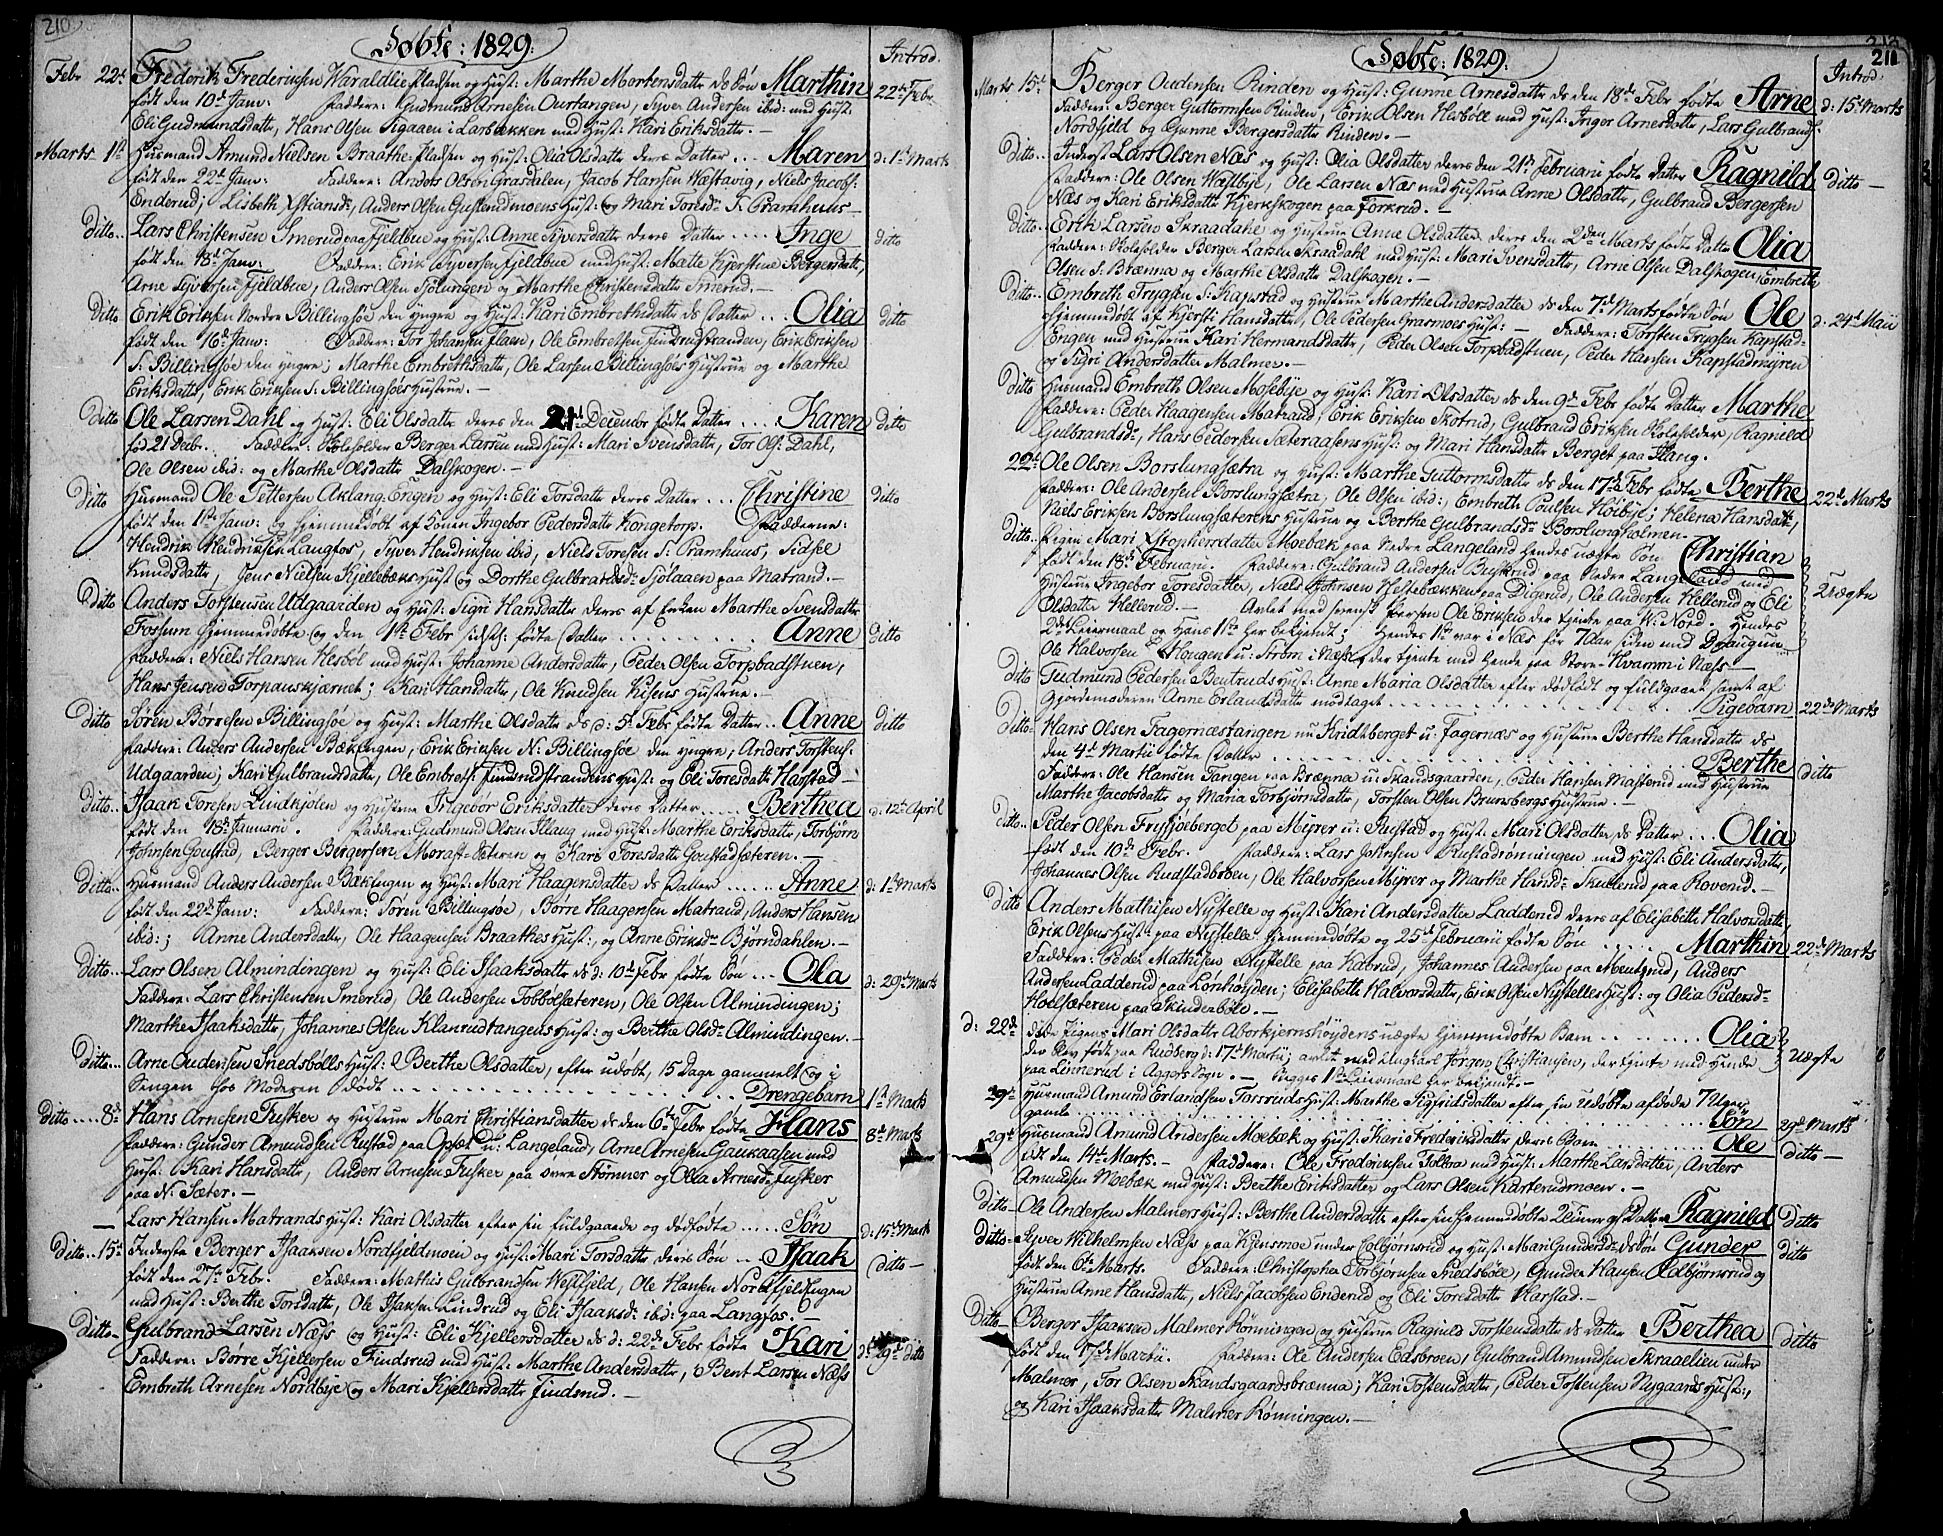 210
Døbte: 1829.
Introd.
Febr 22d Frederik Fredriksen Waraldlie Pladsen og Hust: Marthe Mortensdatter ds Søn Marthin 22de Febr
født den 10d Janv: Faddere: Gudmund Arnesen Ourtangen, Syver Andersen ibid: med Hust:
Eli Gudmundsdattr, Hans Olsen Sigaaen i Larsbækken med Hust: Kari Eriksdattr. —
Marts 1st Husmand Amund Nielsen Braathe-Pladsen og Hust: Olia Olsdattr deres Datter ... Maren d: 1st Marts
født den 22d Janv: Faddere: Anders Olsen Grasdalen, Jacob Hansen Wæstavig, Niels Jacobs:
Enderud; Lisbeth Xstiansdr, Anders Olsen Gustenudmoens Hust: og Mari Toresdr S: Pramhuus —
Ditto.. Lars Christensen Smerud paa Fjeldbue og Hust: Anne Syversdattr deres Datter .... Inge ditto
født den 18d Janv: Faddere: Erik Syversen Fjeldbue med Hust: Mætte Kjerstine Bergersdattr,
Arne Syversen Fjeldbue, Anders Olsen Sjølungen og Marthe Christensdattr Smerud. —
Ditto Erik Eriksen Nordre Billingsøe den yngre og Hust: Kari Embrethsdattr ds Datter ... Olia ditto
født den 16d Janv: Faddere: Tor Johansen Flaen, Ole Embretsen Findsrudstranden, Erik Eriksen
S: Billingsøe den yngre; Marthe Embrethsdattr, Ole Larsen Billingsøes Hustrue og Marthe
Eriksdattr, Erik Eriksen S: Billingsøes Hustrue. —
Ditto Ole Larsen Dahl og Hust: Eli Olsdattr deres den 21d December fødte Datter .... Karen ditto
fød 21 Decbr. Faddere: Skoleholder Berger Larsen med Hust: Mari Svensdattr, Tor Ols: Dahl,
Ole Olsen ibid: og Marthe Olsdattr Dalskogen. —
Ditto Husmand Ole Pettersen Aklang-Engen og Hust: Eli Torsdattr deres Datter ... Christine ditto
født den 1ste Janv: og hjemmedøbt af Konen Ingebor Pedersdattr Kongetorp. Fadderne:
Hendrik Hendriksen Langfos, Syver Hendriksen ibid, Niels Toresen S: Pramhuus, Sidsel
Knudsdattr, Jens Nielsen Kjellebæks Hust: og Dorthe Gulbrandsdr Sjølaaen paa Matrand. —
Ditto Anders Torstensen Udgaarden og Hust: Sigri Hansdattr deres af Enken Marthe Svensdattr
Fossum hjemmedøbte og den 1ste Febr fødte Datter .......... Anne ditto
Faddere: Niels Hansen Hesbøl med Hust: Johanne Andersdattr, Peder Olsen Torpbadstuen,
Hans Jensen Torpauskjærnet; Kari Hansdattr, Ole Knudsen Kisens Hustrue. —
Ditto Søren Børresen Billingsøe og Hust: Marthe Olsdattr ds d: 5d Febr fødte Datter.. Anne ditto
Faddere: Anders Andersen Bækengen, Erik Eriksen N: Billingsøe den yngre, Anders Torstens:
Udgaarden; Kari Gulbrandsdattr, Ole Embrets: Findsrudstrandens Hust: og Eli Toresdattr Harstad —
Ditto.. Isaak Toresen Lundkjølen og Hustrue Ingebor Eriksdatter deres Datter .... Berthea d: 12te April
født den 18d Januarii. Faddere: Gudmund Olsen Flaug med Hust: Marthe Eriksdattr, Torbjørn
Johnsen Goustad, Berger Bergersen Morast-Sæteren og Kari Toresdattr Goustadsæteren. —
Ditto.. Husmand Anders Andersen Bækengen og Hust: Mari Haagensdattr ds Datter ...... Anne d: 1ste Marts
født den 22d Janv: Faddere: Søren Billingsøe, Børre Haagensen Matrand, Anders Hansen
ibid:; Anne Andersdattr, Ole Haagensen Braathes Hust:, og Anne Eriksdr Bjørndahlen. —
Ditto.. Lars Olsen Almindingen og Hust: Eli Isaaksdattr ds d: 10d Febr fødte Søn ... Ola d: 29de Marts
Faddere: Lars Christensen Smerud, Ole Andersen Tobbølsæteren, Ole Olsen Almindingen;
Marthe Isaaksdattr, Johannes Olsen Klanrudtangens Hust: og Berthe Olsdr Almindingen. —
Ditto... Arne Andersen Snedsbølls Hust: Berthe Olsdattr, efter udøbt, 15 Dage gammelt og i
Sengen hos Moderen dødt .......... Drengebarn 1st Marts
Ditto .... 8d Hans Arnesen Fusker og Hustrue Mari Christiansdatter ds den 6te Febr fødte Hans 8d Marts
Faddere: Gunder Amundsen Rustad paa Opset u: Langeland, Arne Arnesen Gaukaasen med
Hust: Kari Hansdattr, Anders Arnesen Fusker paa øvre Stømner og Olia Arnesdr Fusker
paa N: Sæter. —
— Lars Hansen Matrands Hust: Kari Olsdattr efter sin fuldgaaede og dødfødte ..... Søn d: 15d Marts
Ditto.. 15d Inderste Berger Isaaksen Nordfjeldmoen og Hust: Mari Torsdattr deres Søn .. Isaak ditto —
født den 27d Febr. Faddere: Mathis Gulbrandsen Westfjeld, Ole Hansen Nordfjeldengen
med Hust: Berthe Torsdattr, Ole Isaksen Lindrud og Eli Isaaksdr ibid: paa Langfos. —
Ditto — Gulbrand Larsen Næss og Hust: Eli Kjellersdatter ds d: 22d Febr fødte Kari d: 29d ditto
Faddere: Børre Kjellersen Findsrud med Hust: Marthe Andersdattr, Bent Larsen Næss
Embreth Arnesen Nordbye og Mari Kjellersdattr Findsrud. —
211
Døbte: 1829.
Introd.
Marts 15d Berger Oudensen Rinden og Hust: Gunne Arnesdattr ds den 18d Febr fødte Arne d: 15d Marts
Faddere: Berger Guttormsen Rinden, Erik Olsen Hesbøll med Hust: Inger Arnesdattr, Lars Gulbrands:
Nordfjeld og Gunne Bergersdattr Rinden. —
Ditto.. Inderst Lars Olsen Næs og Hust: Olia Olsdatter deres den 21d Februarii fødte Datter Ragnild ditto —
Faddere: Ole Olsen Wastbye, Ole Larsen Næs med Hustrue Anne Olsdattr, Gulbrand Bergersen
Næs og Kari Eriksdattr Kjerkskogen paa Forkrud. —
Ditto.. Erik Larsen Skraadahl og Hustrue Anne Olsdatter deres den 2den Marts fødte Datter Olia
Faddere: Skoleholder Berger Larsen Skraadahl med Hust: Mari Svensdattr, Arne Olsen Dalskogen, Embreth
Olsen S: Brænna og Marthe Olsdattr Dalskogen. —
Ditto.. Embreth Trygsen S: Kapstad og Hustrue Marthe Andersdatter ds den 7d Marts fødte Søn Ole d: 24d Maii
hjemmedøbt af Kjersti Hansdattr, Ole Pedersen Grasmoes Hust: — Faddere: Torsten Trygsen Kapstad-
Engen med Hustrue Kari Hermandsdattr, Peder Olsen Torpbadstuen, Peder Hansen Kapstadmyren
og Sigri Andersdatter Malmer. —
Ditto Husmand Embreth Olsen Mosebye og Hust: Kari Olsdatter ds den 9d Febr fødte Datter Marthe
Faddere: Peder Haagensen Matrand, Erik Eriksen Skotrud, Gulbrand Eriksen Skoleholder, Ragnild
Gulbrandsdr, Hans Pedersen Sæteraasens Hust: og Mari Hansdattr Berget paa Flaug.
22d Ole Olsen Borslungsætra og Hust: Marthe Guttormsdattr ds den 17de Febr fødte Berthe 22d Marts
Faddere: Ole Andersen Borslungsætra, Ole Olsen ibid:, Embreth Poulsen Høibye; Helena Hansdattr,
Niels Eriksen Borslungsæterens Hustrue og Berthe Gulbrandsdr Borslungholmen.
Ditto.. Pigen Mari Xstophersdatter Moebæk paa Nedre Langeland hendes uægte Søn Christian
født den 18d Februarii. Faddere: Gulbrand Andersen Buskrud paa Nedre Langeland med
Hustrue Ingebor Toresdattr, Niels Johnsen Heltebækken paa Digerud, Ole Andersen Hellerud og Eli
Olsdatter Hellerud. — Avlet med svensk Person Ole Eriksen der tjente paa W: Nord. Hendes
2de Leiermaal og Hans 1ste her bekjendt; Hendes 1ste var i Næs for 7 Aar siden med Dragun
Ole Halvorsen Hougen u: Strøm i Næss, der tjente med hende paa Store-Kvamm i Næss —
Uægte
Ditto Gudmund Pedersen Bentruds Hust: Anne Maria Olsdatter efter dødfødt og fuldgaaet samt af
Gjordemoderen Anne Erlandsdatter modtaget .......... Pigebarn 22de Marts
Ditto Hans Olsen Fagernæstangen nu Kridtberget u: Fagernæs og Hustrue Berthe Hansdattr ds
den 4d Martii fødte Datter .......... Berthe ditto
Faddere: Ole Hansen Tangen paa Brænna u: Skandsgaarden, Peder Hansen Masterud med Hustrue
Marthe Jacobsdattr og Maria Torbjørnsdattr, Torsten Olsen Brunsbergs Hustrue. —
Ditto.. Peder Olsen Frysjøberget paa Myrer u: Rustad og Hust: Mari Olsdatter ds Datter ... Olia
født den 10d Febr. Faddere: Lars Johnsen Rustadrønningen med Hust: Eli Andersdattr,
Johannes Olsen Rudstadbroen, Ole Halvorsen Myrer og Marthe Hansdr Skullerud paa Roverud. —
Ditto Anders Mathisen Nystelle og Hust: Kari Andersdatter Ladderud deres af Elisabeth Halvorsdattr,
Erik Olsens Hust: paa Nystelle hjemmedøbte og 25d Februarii fødte Søn ..... Marthin 22d Marts
Faddere: Peder Mathisen Nystelle paa Kaurud, Johannes Andersen paa Mentzrud, Anders
Andersen Ladderud paa Lønhøyden; Elisabeth Halvorsdattr, Erik Olsen Nystelles Hust: og Olia Pedersdr
Hoelsæteren paa Skinderbøle. —
d: 22d den Pigens Mari Olsdattr Aborkjernshøydens uægte hjemmedøbte Barn ........ Olia Uægte
der blev født paa Rudberg d: 17d Martii; avlet med Ungkarl Jørgen Christiansen, der tjente med hende
paa Linnerud i Aggers Sogn. — Begges 1ste Leiermaal her bekjendt. —
29d Husmand Amund Erlandsen Torsruds Hust: Marthe Sigfridsdatter efter sin udøbte afdøde 7 Uger
gamle .......... Søn 29d Marts
29d Husmand Amund Andersen Moebæk og Hust: Kari Frederiksdattr deres Barn ........ Ole ditto —
født den 14d Marts. — Faddere: Ole Fredriksen Tollra med Hust: Marthe Larsdatter, Anders
Amundsen Moebæk med Hust: Berthe Eriksdatter og Lars Olsen Karterudmoen. —
Ditto Ole Andersen Malmers Hust: Berthe Andersdattr efter sin hjemmedøbte Datter Ragnild ditto
Ditto — Syver Wilhelmsen Næss paa Kjensmoe under Colbjørnsrud og Hust: Mari Gundersdr ds Søn Gunder ditto
født den 6te Marts. Faddere: Christopher Torbjørnsen Snedsbøle, Gunder Hansen Colbjørnsrud og
Hustrue Anne Hansdattr, Niels Jacobsen Enderud og Eli Toresdattr Harstad. —
Ditto Berger Isaaksen Malmer Rønningen og Hustrue Ragnild Torstensdattr ds Datter Berthea ditto
født den 17d Martii. Faddere: Ole Andersen Edsbroen, Gulbrand Amundsen Skraaelien under
Malmer, Tor Olsen Skandsgaardsbrænna; Kari Tostensdattr, Peder Tostensen Nygaards Hust:,
og Kari Isaaksdattr Malmer Rønningen. —